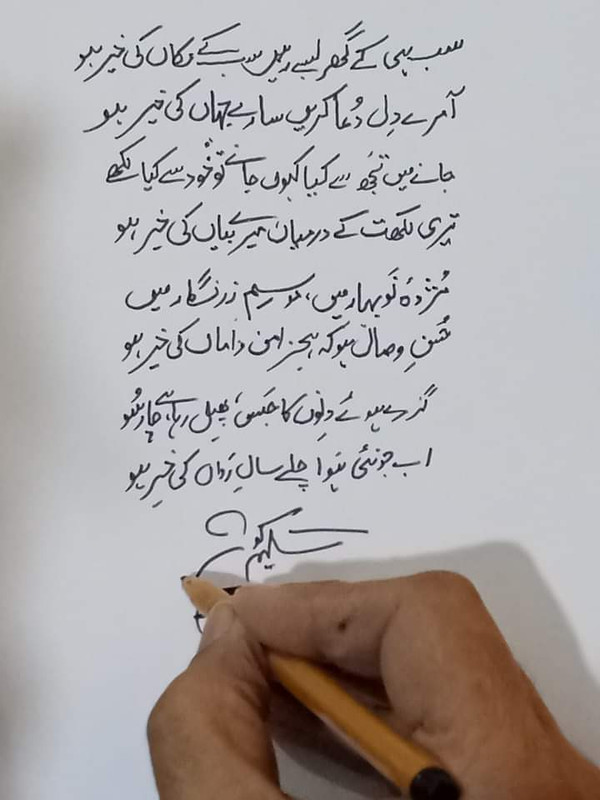 سب ہی کے گھر بسے رہیں سب کے مکاں کی خیر ہو
آ مرے دِل دُعا کریں سارے جہاں کی خیر ہو
جانے میں تجھ سے کیا کہوں جانے تُو خود سے کیا لکھے
تیری لکھت کے درمیان میرے بیاں کی خیر ہو
مُژدۂ نَو بہار میں، موسمِ زرنگار میں
حُسنِ وصال ہو کہ ہجر امن و اماں کی خیر ہو
گزرے ہوئے دِنوں کا حَبس، پھیل رہا ہے چار سُو
اب جو نئی ہَوا چلے سالِ رَواں کی خیر ہو
سلیم کوثر